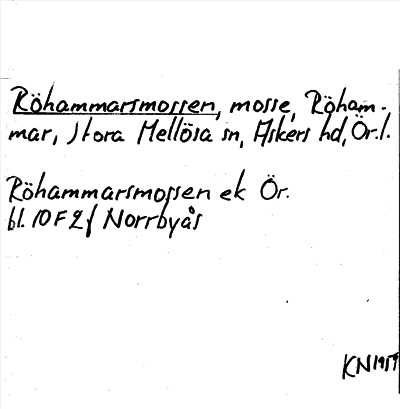 Röhammarsmossen, mosse, Röham-
mar, Stora Mellösa sn, Askers hd, Ör.l.
Röhammarsmossen ek Ör.
bl. 10F2f Norrbyås
KN1959